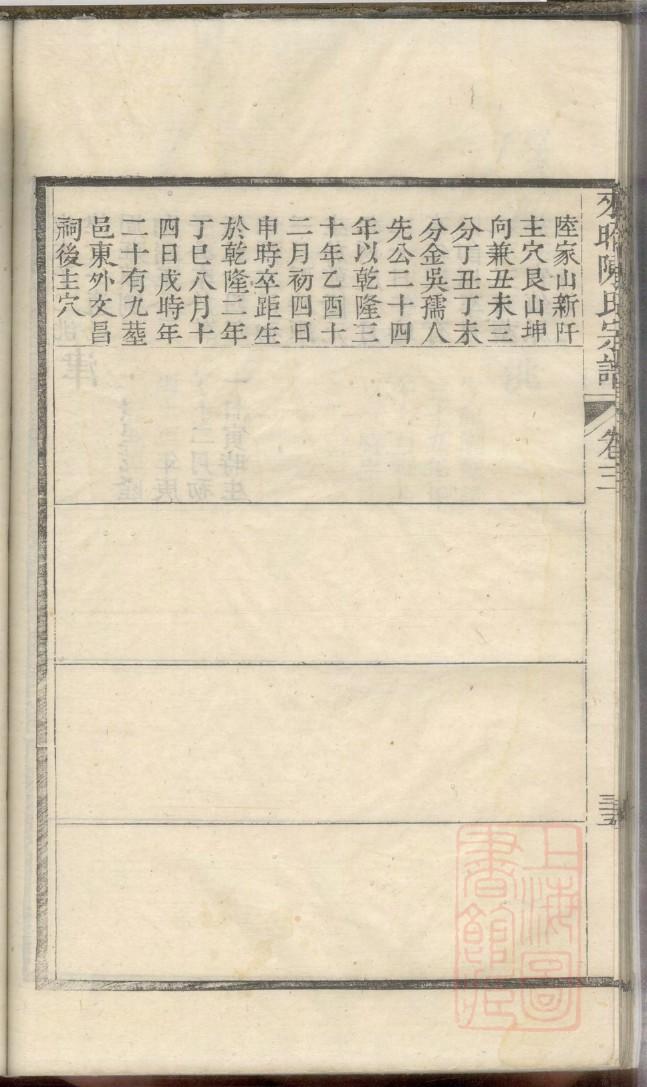 陸家山新阡
主穴艮山坤
向兼丑未三
分丁丑丁未
分金吳孺人
先公二十四
年以乾隆三
十年乙酉十
二月初四日
申時卒距生
於乾隆二年
丁巳八月十
四日戌時年
二十有九塟
邑東外文昌
祠後主穴
陳氏宗譜
卷三
上海圖
書館藏